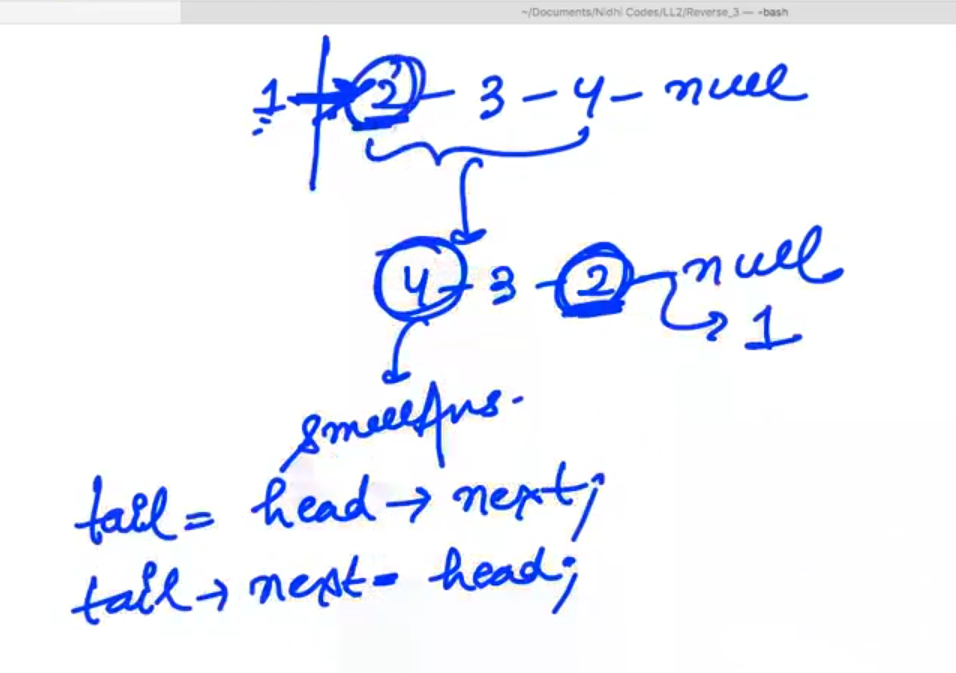 ~/Documents/Nidhi Codes/LL2/Reverse_3 — -bash
1 → 2 - 3 - 4 - null
4 - 3 - 2 - null
→ 1
smallAns.
tail = head → next;
tail → next = head;